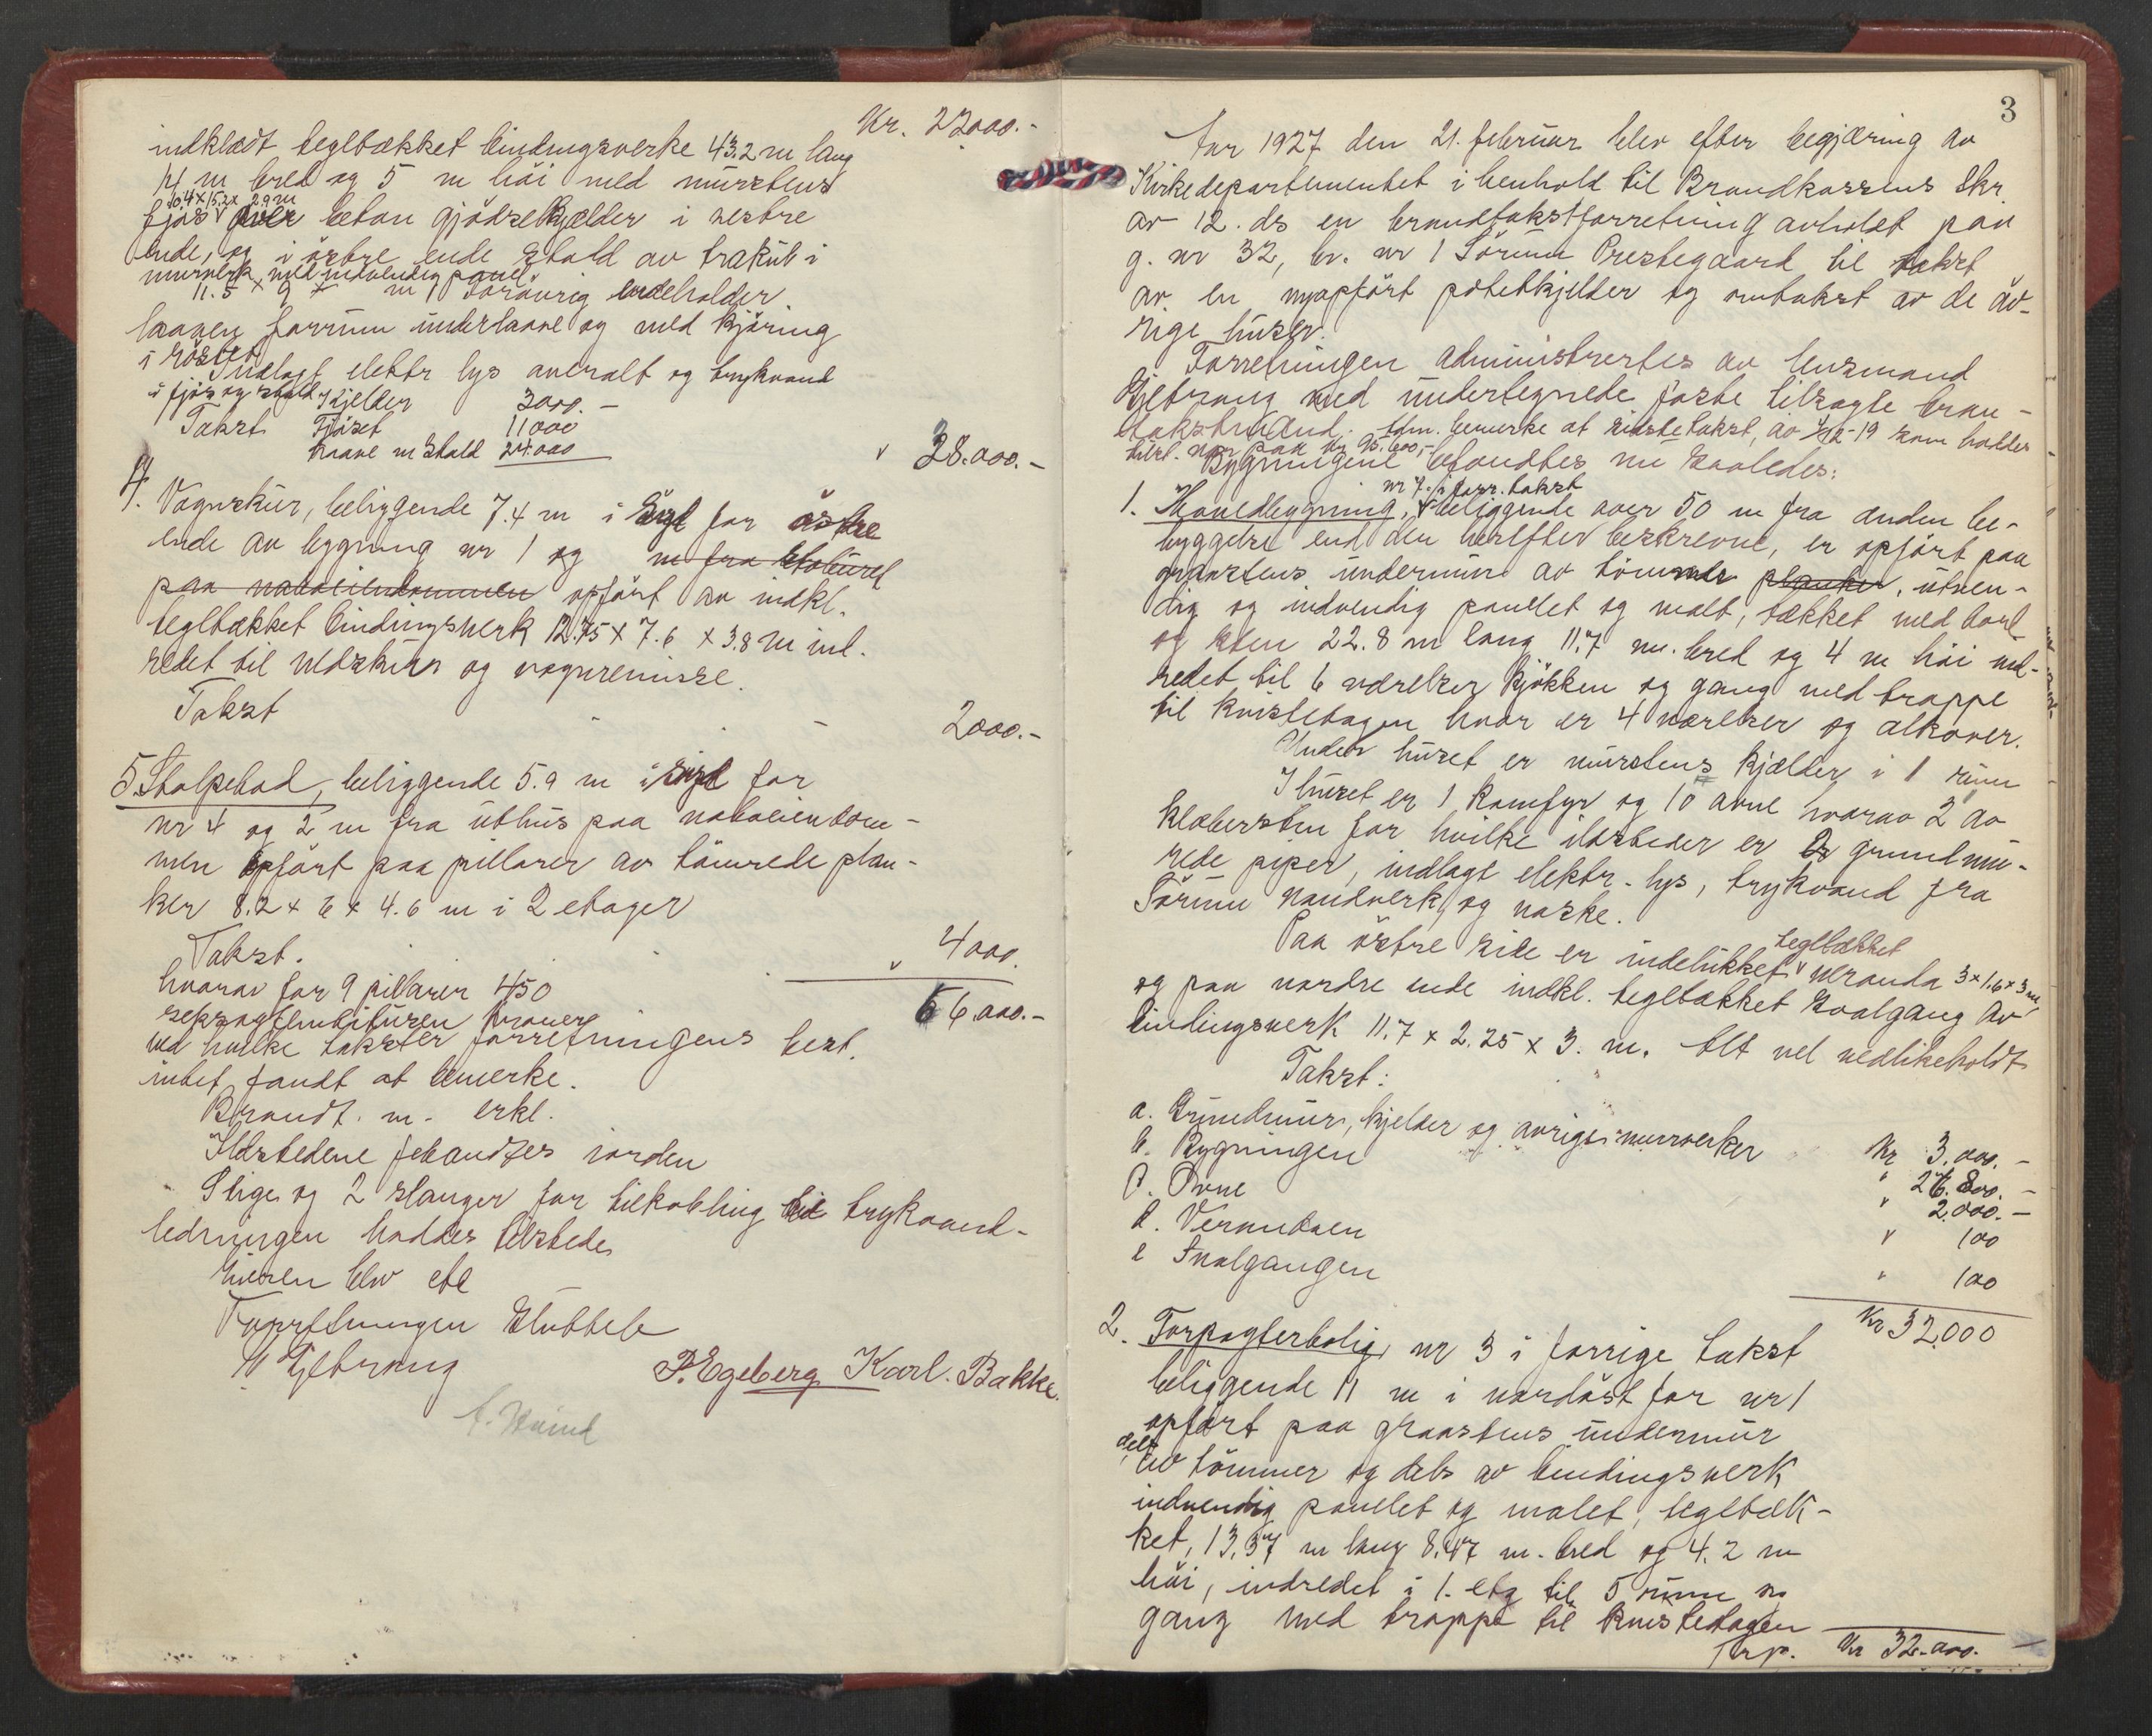 Kr. 22000.-
indklædt tegltækket bindingsverke 43.2 m lang
14 m bred og 5 m höi med murstens
10.4 x 15.2 x 2.9 m
fjös over beton gjödselkjælder i vestre
ende, og i östre ende stald av trækub i
murverk, med indvendig panel
11.5 x 9 x m Forövrig indeholder
laaven forrum underlaave og med kjöring
i röstet
Indlagt elektr lys overalt og trykvand
i fjös og stald
Kjelder 3000.-
Takst Fjöset 11000
Laave m Stald 24.000
" 38.000.-
4. Vognskur, beliggende 7.4 m i syd for östre
ende av bygning nr 1 og m fra stabburet
paa naboeiendommen opfört av indkl.
tegltækket bindingsverk 12.75 x 7.6 x 3.8 m ind-
redet til vedskur og vognremisse.
Takst
- 2000.-
5. Stolpebod, beliggende 5.9 m i syd for
nr 4 og 2 m fra uthus paa naboeiendom-
men opfört paa pillarer av tömrede plan-
ker 8.2 x 6 x 4.6 m i 2 etager
Takst. " 4000.
hvorav for 9 pillarer 450
66.000.-
ved hvilke takster forretningens best.
intet fandt at bemerke.
Brandt. m. erkl.
Ildstedene befandtes iorden
Stige og 2 slanger for tilkobling til trykvand-
ledningen haddes tilstede
Eieren blev
Forretningen sluttet
Gjebrang
P. Egeberg Karl. Bakke.
3
Aar 1927 den 21. februar blev efter begjæring av
Kirkedepartementet i henhold til Brandkassens Skr.
av 12. ds en brandtakstforretning avholdt paa
g. nr 32, br. nr 1 Sörum Prestegaard til takst
av en nyopfört potetkjelder og omtakst av de öv-
rige huser.
Forretningen administrertes av lensmand
Gjebrang med undertegnede faste tilsagte bran-
takstmænd. Adm. bemerke at sidste takst, av 19 som holdes
tilst. var paa kr 95.600,-
Bygningene befandtes nu saaledes:
nr 7. i forr. takst
1. Hovedbygning, beliggende over 50 m fra anden be-
byggelse end den herefter beskrevne, er opfört paa
graastens undermur av tömmer planker, utven-
dig og indvendig panelet og malt, tækket med bord
og sten 22.8 m lang 11.7 m. bred og 4 m höi ind-
redet til 6 værelser kjökken og gang med trappe
til kvistetagen hvor er 4 værelser og alkover.
Under huset er murstens kjælder i 1 rum
I huset er 1 komfyr og 10 ovne hvorav 2 av
klæbersten for hvilke ildsteder er 2 grundmu-
rede piper, indlagt elektr. lys, trykvand fra
Sörum vandverk, og vaske.
Paa östre side er indelukket tegltækket veranda 3 x 1.6 x 3 m,
og paa nordre ende indkl. tegltækket svalgang av
bindingsverk 11.7 x 2.25 x 3. m. Alt vel vedlikeholdt
Takst:
a. Grundmur, kjelder og övrige murverker Kr 3.000.-
b. Bygningen " 26.800.-
c. Ovne " 2.000.-
d. Verandaen " 100
e Svalgangen " 100
Kr 32.000
2. Forpagterbolig nr 3 i forrige takst
beliggende 11 m i nordöst for nr 1
opfört paa graastens undermur
delt av tömmer og dels av bindingsverk
indvendig panelet og malet, tegltæk-
ket, 13.37 m lang 8.47 m. bred og 4.2 m
höi, indredet i 1. etg til 5 rum og
gang med trappe til kvistetagen
Trp. Kr 32.000.-